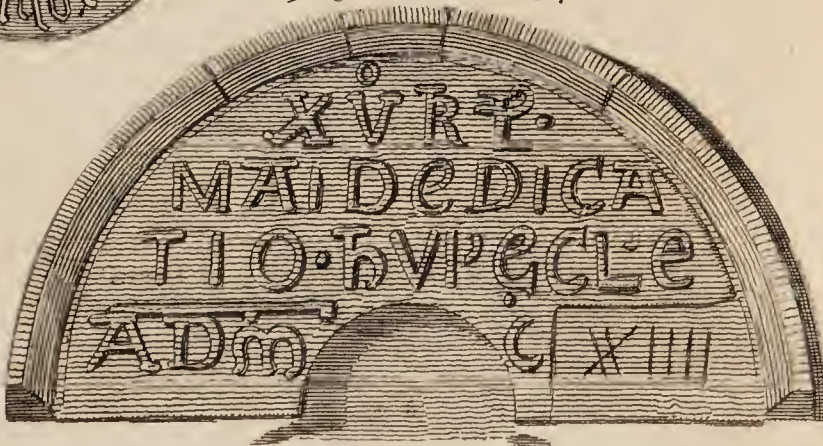 XV̊
MAI DeDICA
TIO·hVI' ęCL·e
ADm̄ C XXIIII